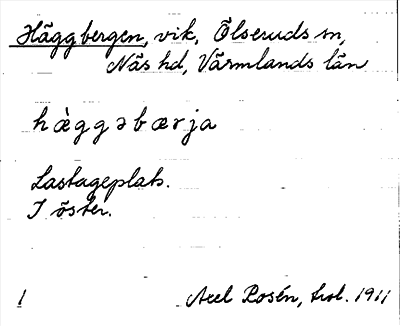 Häggbergen, vik, Ölseruds sn,
Näs hd, Värmlands län
hæ̀ggəbærja
Lastageplats.
I öster.
1
Axel Rosén, trol. 1911